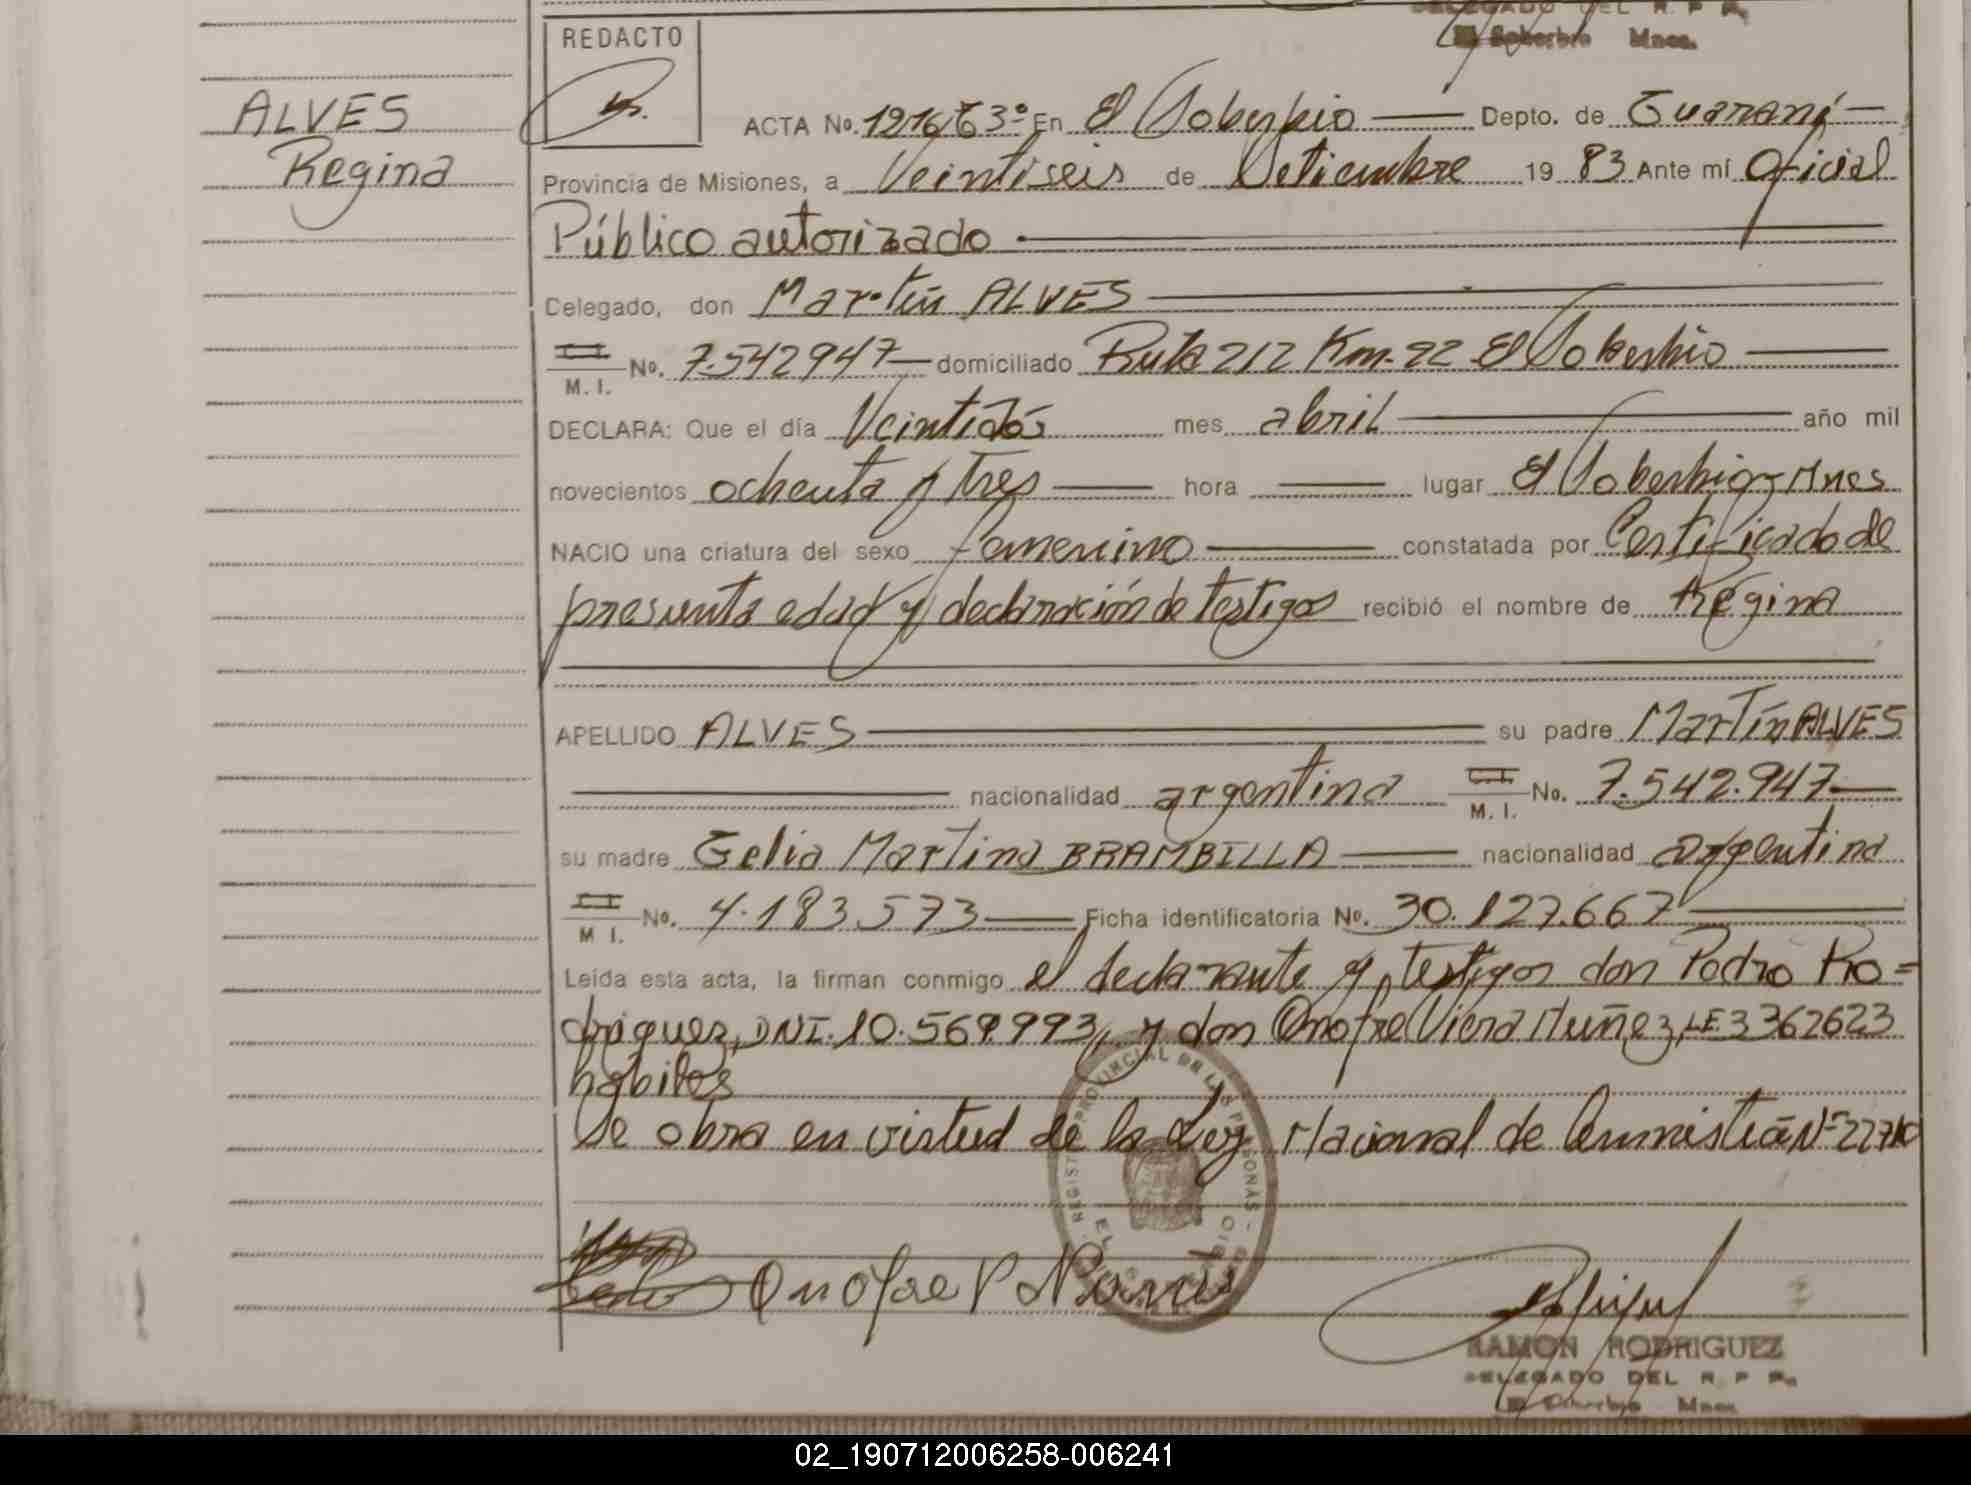 DELEGADO DEL R. P. P.
El Soberbio Mnes.
REDACTO
ALVES
Regina
ACTA No. 1216 T 3º En El Soberbio Depto. de Guaraní
Provincia de Misiones, a Veintiseis de Setiembre 19 83 Ante mí Oficial
Público autorizado
Celegado, don Martín ALVES
M. I. No. 7.542947 domiciliado Ruta 212 Km. 22 El Soberbio
DECLARA: Que el día Veintidós mes abril año mil
novecientos ochenta y tres hora lugar El Soberbio, Mnes
NACIO una criatura del sexo femenino constatada por Certificado de
presunta edad y declaración de testigos recibió el nombre de Regina
APELLIDO ALVES su padre Martín ALVES
nacionalidad argentina M. I. No. 7.542.947
su madre Gelia Martina BRAMBILLA nacionalidad argentina
M I. No. 4.183.573 Ficha identificatoria No. 30.127.667
Leída esta acta, la firman conmigo el declarante y testigos don Pedro Ro=
driguez, DNI. 10.569.993, y don Onofre Viera Nuñez, LE. 3362623
habiles
Se obra en virtud de la Ley Nacional de Amnistía Nº 22710
REGISTRO PROVINCIAL DE LAS PERSONAS
Onofre V
RAMON RODRIGUEZ
DELEGADO DEL R. P. P.
El Soberbio Mnes.
02_190712006258-006241